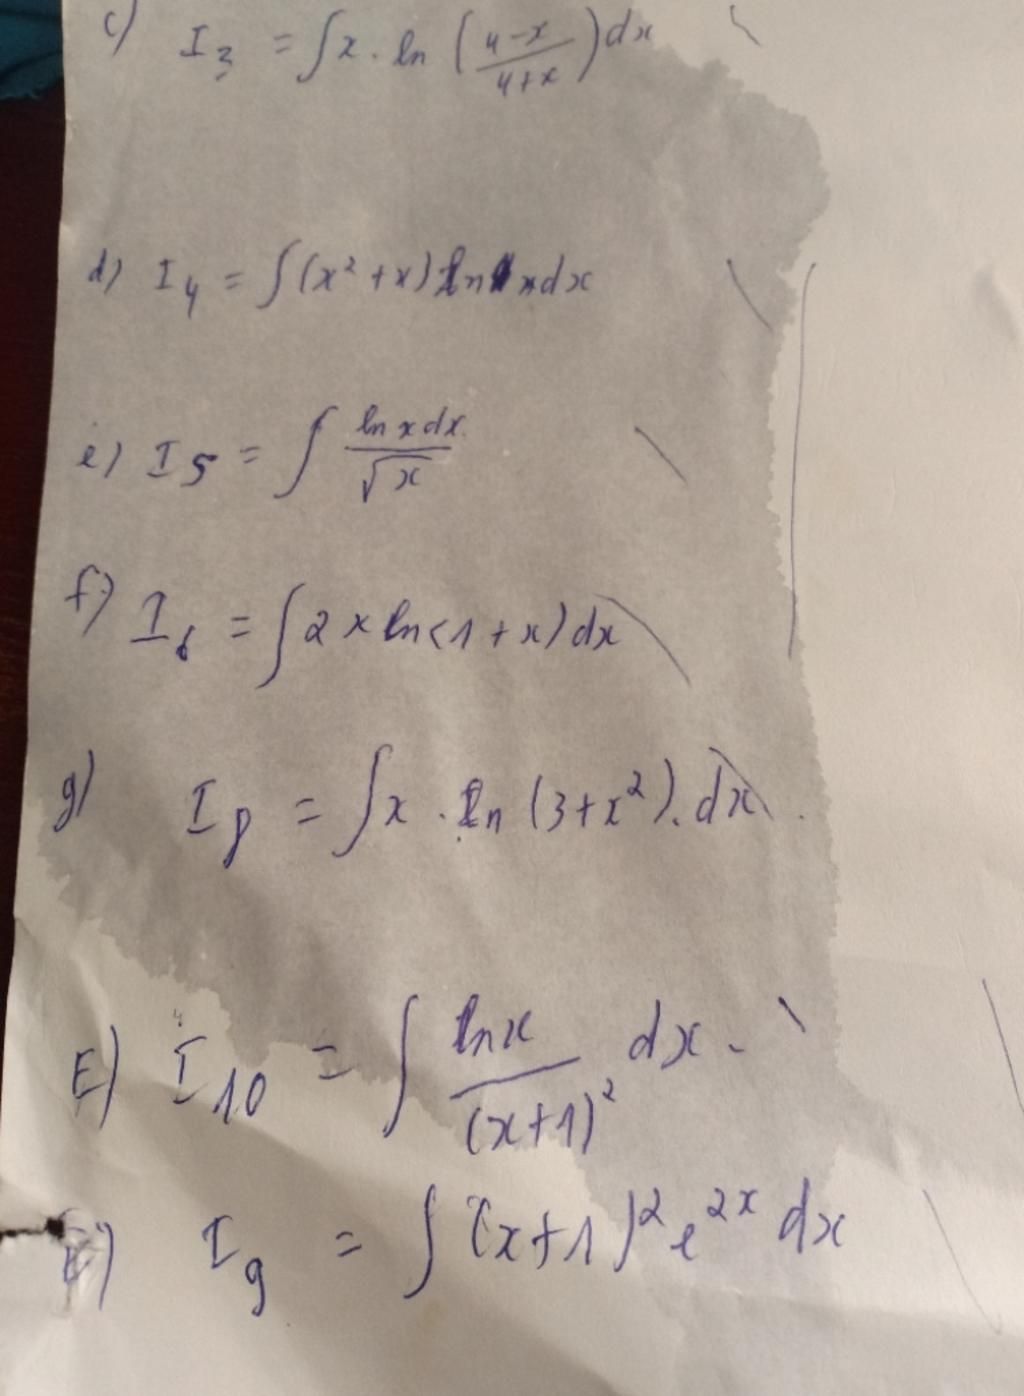 c) I₃ = ∫x . ln (4-x/4+x) dx
d) I₄ = ∫(x² + x) ln x dx
e) I₅ = ∫ ln x dx / √x
f) I₆ = ∫2 x ln(1 + x) dx
g) I₈ = ∫x . ln (3+x²). dx
E) I₁₀ = ∫ ln x / (x+1)² dx
I₉ = ∫ (x+1)² e²ˣ dx